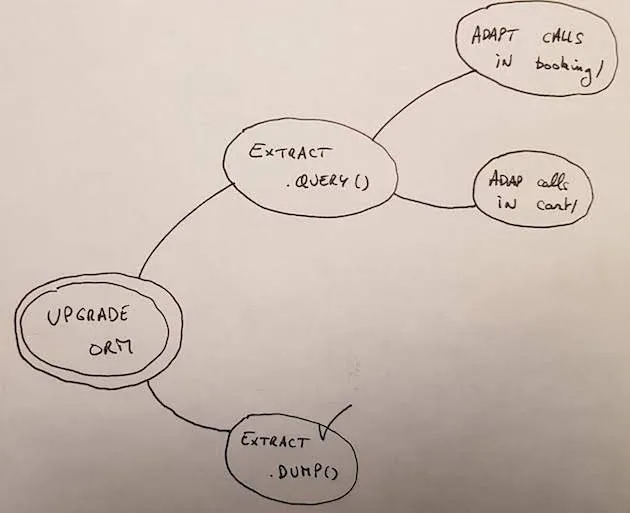 ADAPT CALLS
IN booking/
EXTRACT
.QUERY()
ADAP calls
IN cart/
UPGRADE
ORM
EXTRACT
.DUMP()